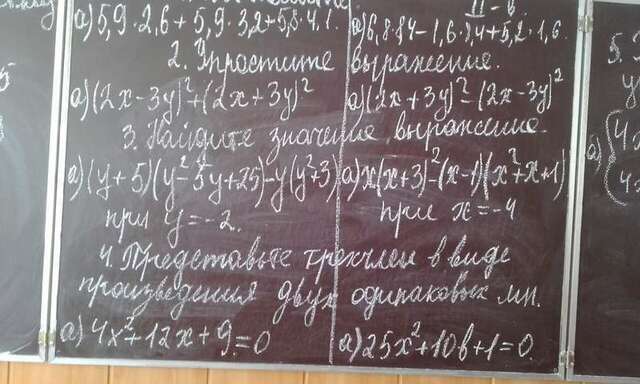 II - в
а) 5,9·2,6 + 5,9·3,2 + 5,8·4,1.
2. Упростите выражение.
а) (2x-3y)²+(2x+3y)² а) (2x+3y)²-(2x-3y)²
3. Найдите значение выражение.
а) (y+5)(y²-5y+25)-y(y²+3) а) x(x+3)²-(x-1)(x²+x+1)
при y=-2. при x=-4
4. Представьте трехчлен в виде
произведения двух одинаковых мн.
а) 4x²+12x+9=0 а) 25x²+10в+1=0.
5.
а)